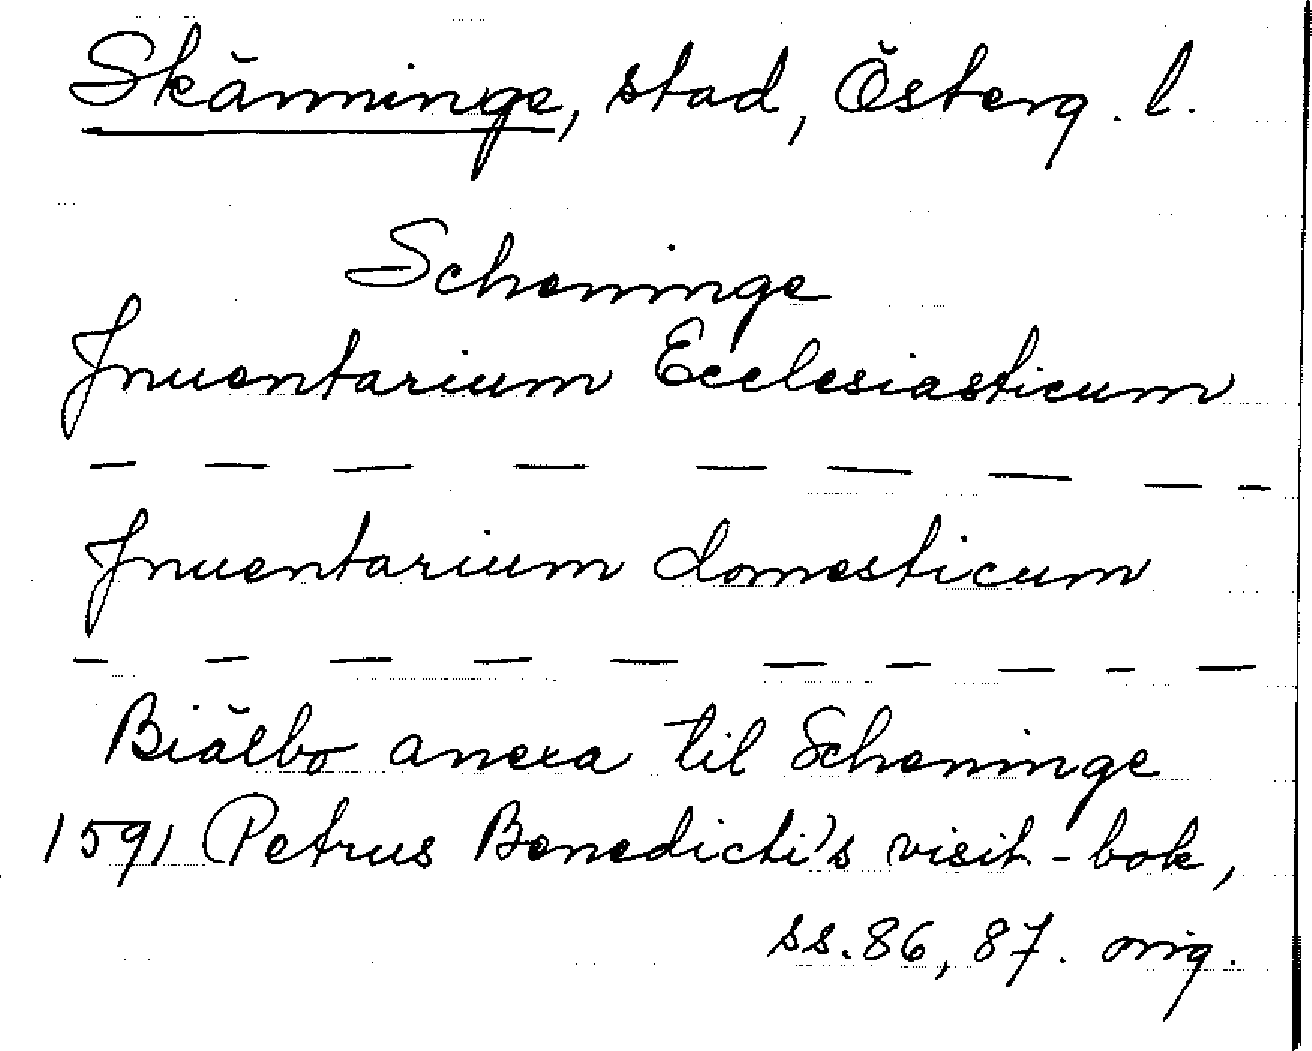 Skänninge, stad, Österg. l.
Scheninge
Inuentarium Ecclesiasticum
— — — — — — — — —
Inuentarium domesticum
— — — — — — — — — —
Biälbo anexa til Scheninge
1591 Petrus Benedicti's visit-bok,
ss. 86, 87. orig.